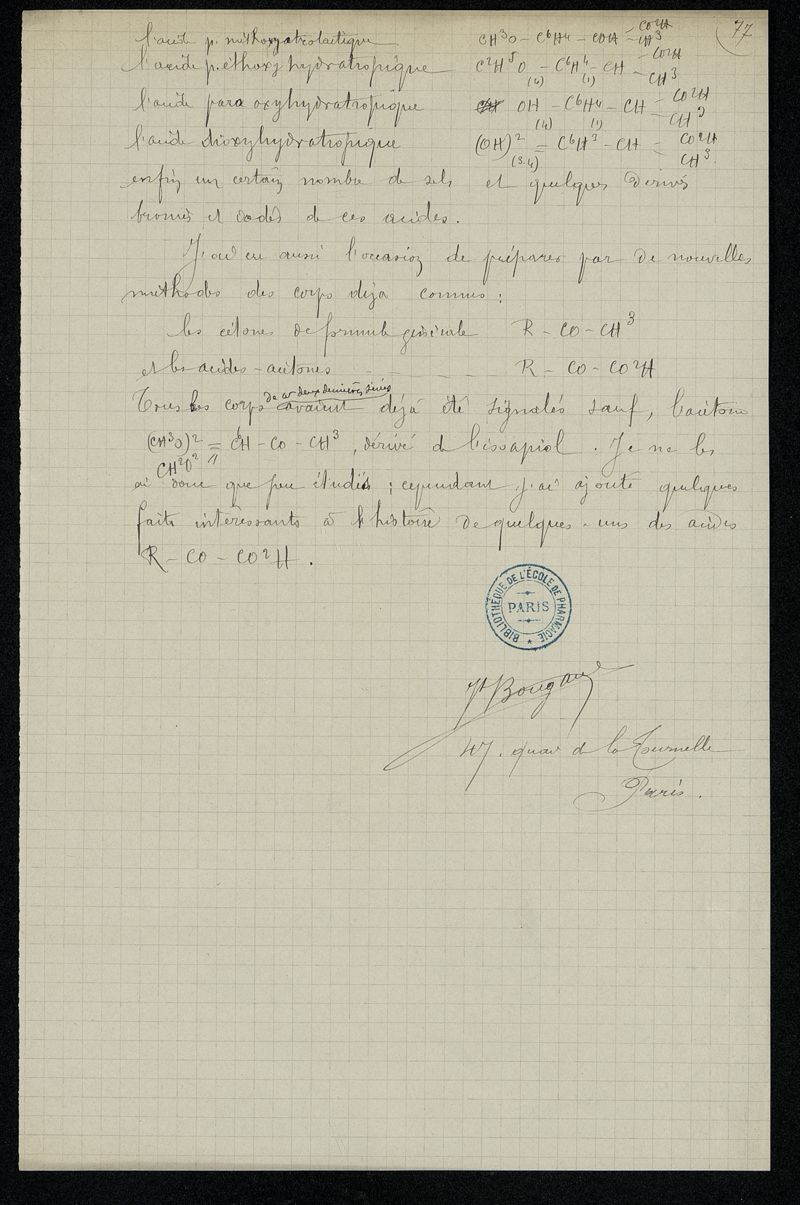 77
l'acide p. méthoxyatrolactique CH³O - C⁶H⁴ - COH = CO²H CH³
l'acide p. ethoxyhydratropique C²H⁵O - C⁶H⁴ - CH - CO²H - CH³
(4) (1)
l'acide para oxyhydratropique OH - C⁶H⁴ - CH - CO²H - CH³
(4) (1)
l'acide dioxyhydratropique (OH)² = C⁶H³ - CH - CO²H CH³.
(3.4)
enfin un certain nombre de sels et quelques dérivés
bromés et iodés de ces acides.
J'ai eu aussi l'occasion de préparer par de nouvelles
méthodes des corps déja connus :
les cétones de formule générale R - CO - CH³
et les acides-acétones - - - R - CO - CO²H
de ces deux dernières séries
Tous les corps avaient déjà été signalés sauf, l'acétone
(CH³O)² = C⁶H - CO - CH³, dérivé de l'isapiol. Je ne les
CH²O²
ai donc que peu étudiés ; cependant j'ai ajouté quelques
faits intéressants à l'histoire de quelques-uns des acides
R - CO - CO²H.
BIBLIOTHÈQUE DE L'ÉCOLE DE PHARMACIE
PARIS
Jh Bougault
47. quai de la Tournelle
Paris.